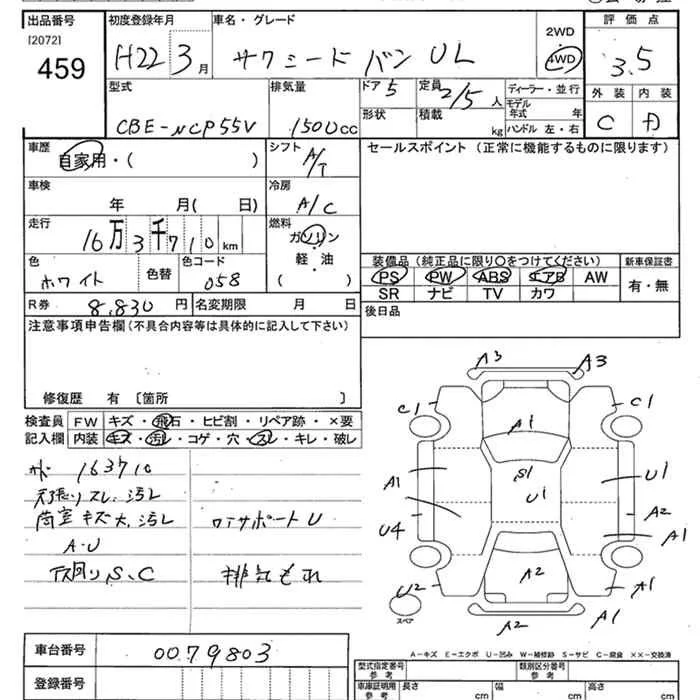 出品番号
[2072]
459
初度登録年月
H22 3 月
車名・グレード
サクシード バン UL
2WD
4WD
評価点
3.5
外装 内装
C D
型式
CBE-NCP55V
排気量
1500cc
ドア 5
形状
定員 2/5 人
積載 kg
ディーラー・並行
モデル年式 年
ハンドル 左・右
車歴
自家用・( )
シフト A/T
セールスポイント (正常に機能するものに限ります)
車検
年 月( 日)
冷房 A/C
走行
16万3千710km
燃料
ガソリン
軽・油
( )
色 ホワイト
色替
色コード 058
装備品(純正品に限り○をつけてください)
新車保証書
PS PW ABS エアB AW
SR ナビ TV カワ
有・無
R券 8,830 円
名変期限 月 日
後日品
注意事項申告欄(不具合内容等は具体的に記入して下さい)
修復歴 有 [箇所 ]
検査員
記入欄
FW キズ・飛石・ヒビ割・リペア跡・×要
内装 キズ・汚レ・コゲ・穴・スレ・キレ・破レ
163710
天張りスレ、汚レ
荷室キズ大、汚レ
A・U
下廻りS、C
コアサポートU
排気もれ
A3 A3
C1 C1
A1
A1 S1 U1 U1
U4 A2
A1
U2 A2 A1
スペア
A2 A1
A-キズ E-エクボ U-凹み W-補修跡 S-サビ C-腐食 ××-交換済
車台番号 0079803
登録番号
型式指定番号
参考
類別区分番号
参考
車庫証明用
参考
長さ cm
幅 cm
高さ cm